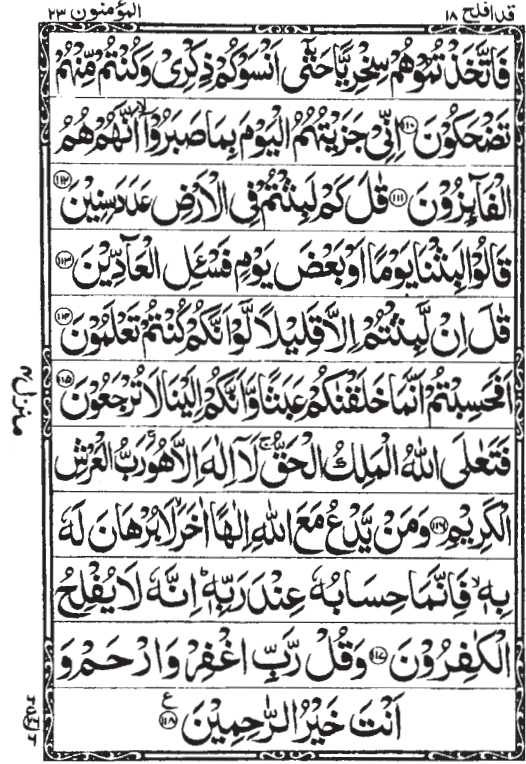 قدافلح ۱۸
المؤمنون ۲۳
فَاتَّخَذْتُمُوْهُمْ سِخْرِيًّا حَتّٰۤى اَنْسَوْكُمْ ذِكْرِیْ وَكُنْتُمْ مِّنْهُمْ
تَضْحَكُوْنَ ۝۱۱۰ اِنِّیْ جَزَيْتُهُمُ الْيَوْمَ بِمَا صَبَرُوْۤا ۙ اَنَّهُمْ هُمُ
الْفَآىِٕزُوْنَ ۝۱۱۱ قٰلَ كَمْ لَبِثْتُمْ فِی الْاَرْضِ عَدَدَ سِنِيْنَ ۝۱۱۲
قَالُوْا لَبِثْنَا يَوْمًا اَوْ بَعْضَ يَوْمٍ فَسْـَٔلِ الْعَآدِّيْنَ ۝۱۱۳
قٰلَ اِنْ لَّبِثْتُمْ اِلَّا قَلِيْلًا لَّوْ اَنَّكُمْ كُنْتُمْ تَعْلَمُوْنَ ۝۱۱۴
اَفَحَسِبْتُمْ اَنَّمَا خَلَقْنٰكُمْ عَبَثًا وَّاَنَّكُمْ اِلَيْنَا لَا تُرْجَعُوْنَ ۝۱۱۵
فَتَعٰلَى اللّٰهُ الْمَلِكُ الْحَقُّ ۚ لَاۤ اِلٰهَ اِلَّا هُوَ ۚ رَبُّ الْعَرْشِ
الْكَرِيْمِ ۝۱۱۶ وَمَنْ يَّدْعُ مَعَ اللّٰهِ اِلٰهًا اٰخَرَ ۙ لَا بُرْهَانَ لَهٗ
بِهٖ ۙ فَاِنَّمَا حِسَابُهٗ عِنْدَ رَبِّهٖ ؕ اِنَّهٗ لَا يُفْلِحُ
الْكٰفِرُوْنَ ۝۱۱۷ وَقُلْ رَّبِّ اغْفِرْ وَارْحَمْ وَ
اَنْتَ خَيْرُ الرّٰحِمِيْنَ ۝۱۱۸ ع
منزل ۴